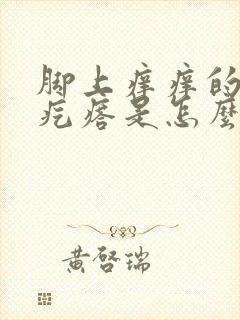 脚上痒痒的
疙瘩是怎麼
黄啓瑞